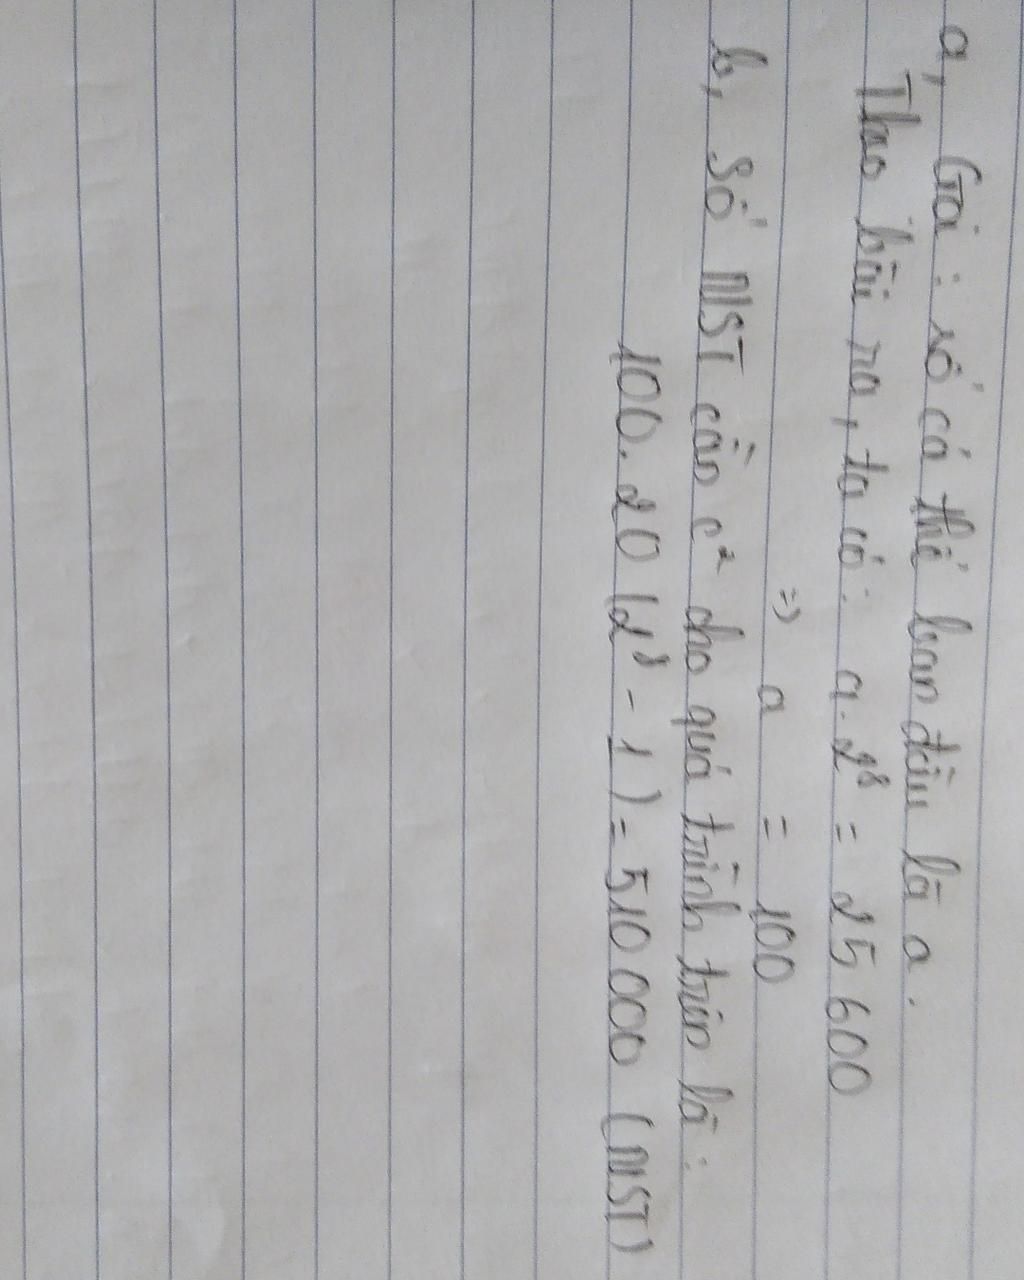 a, Gọi : số cá thể ban đầu là a.
Theo bài ra, ta có : a.2⁸ = 25 600
=> a = 100
b, Số NST cần c² cho quá trình trên là :
100.20 (2⁸ - 1) = 510 000 (NST)